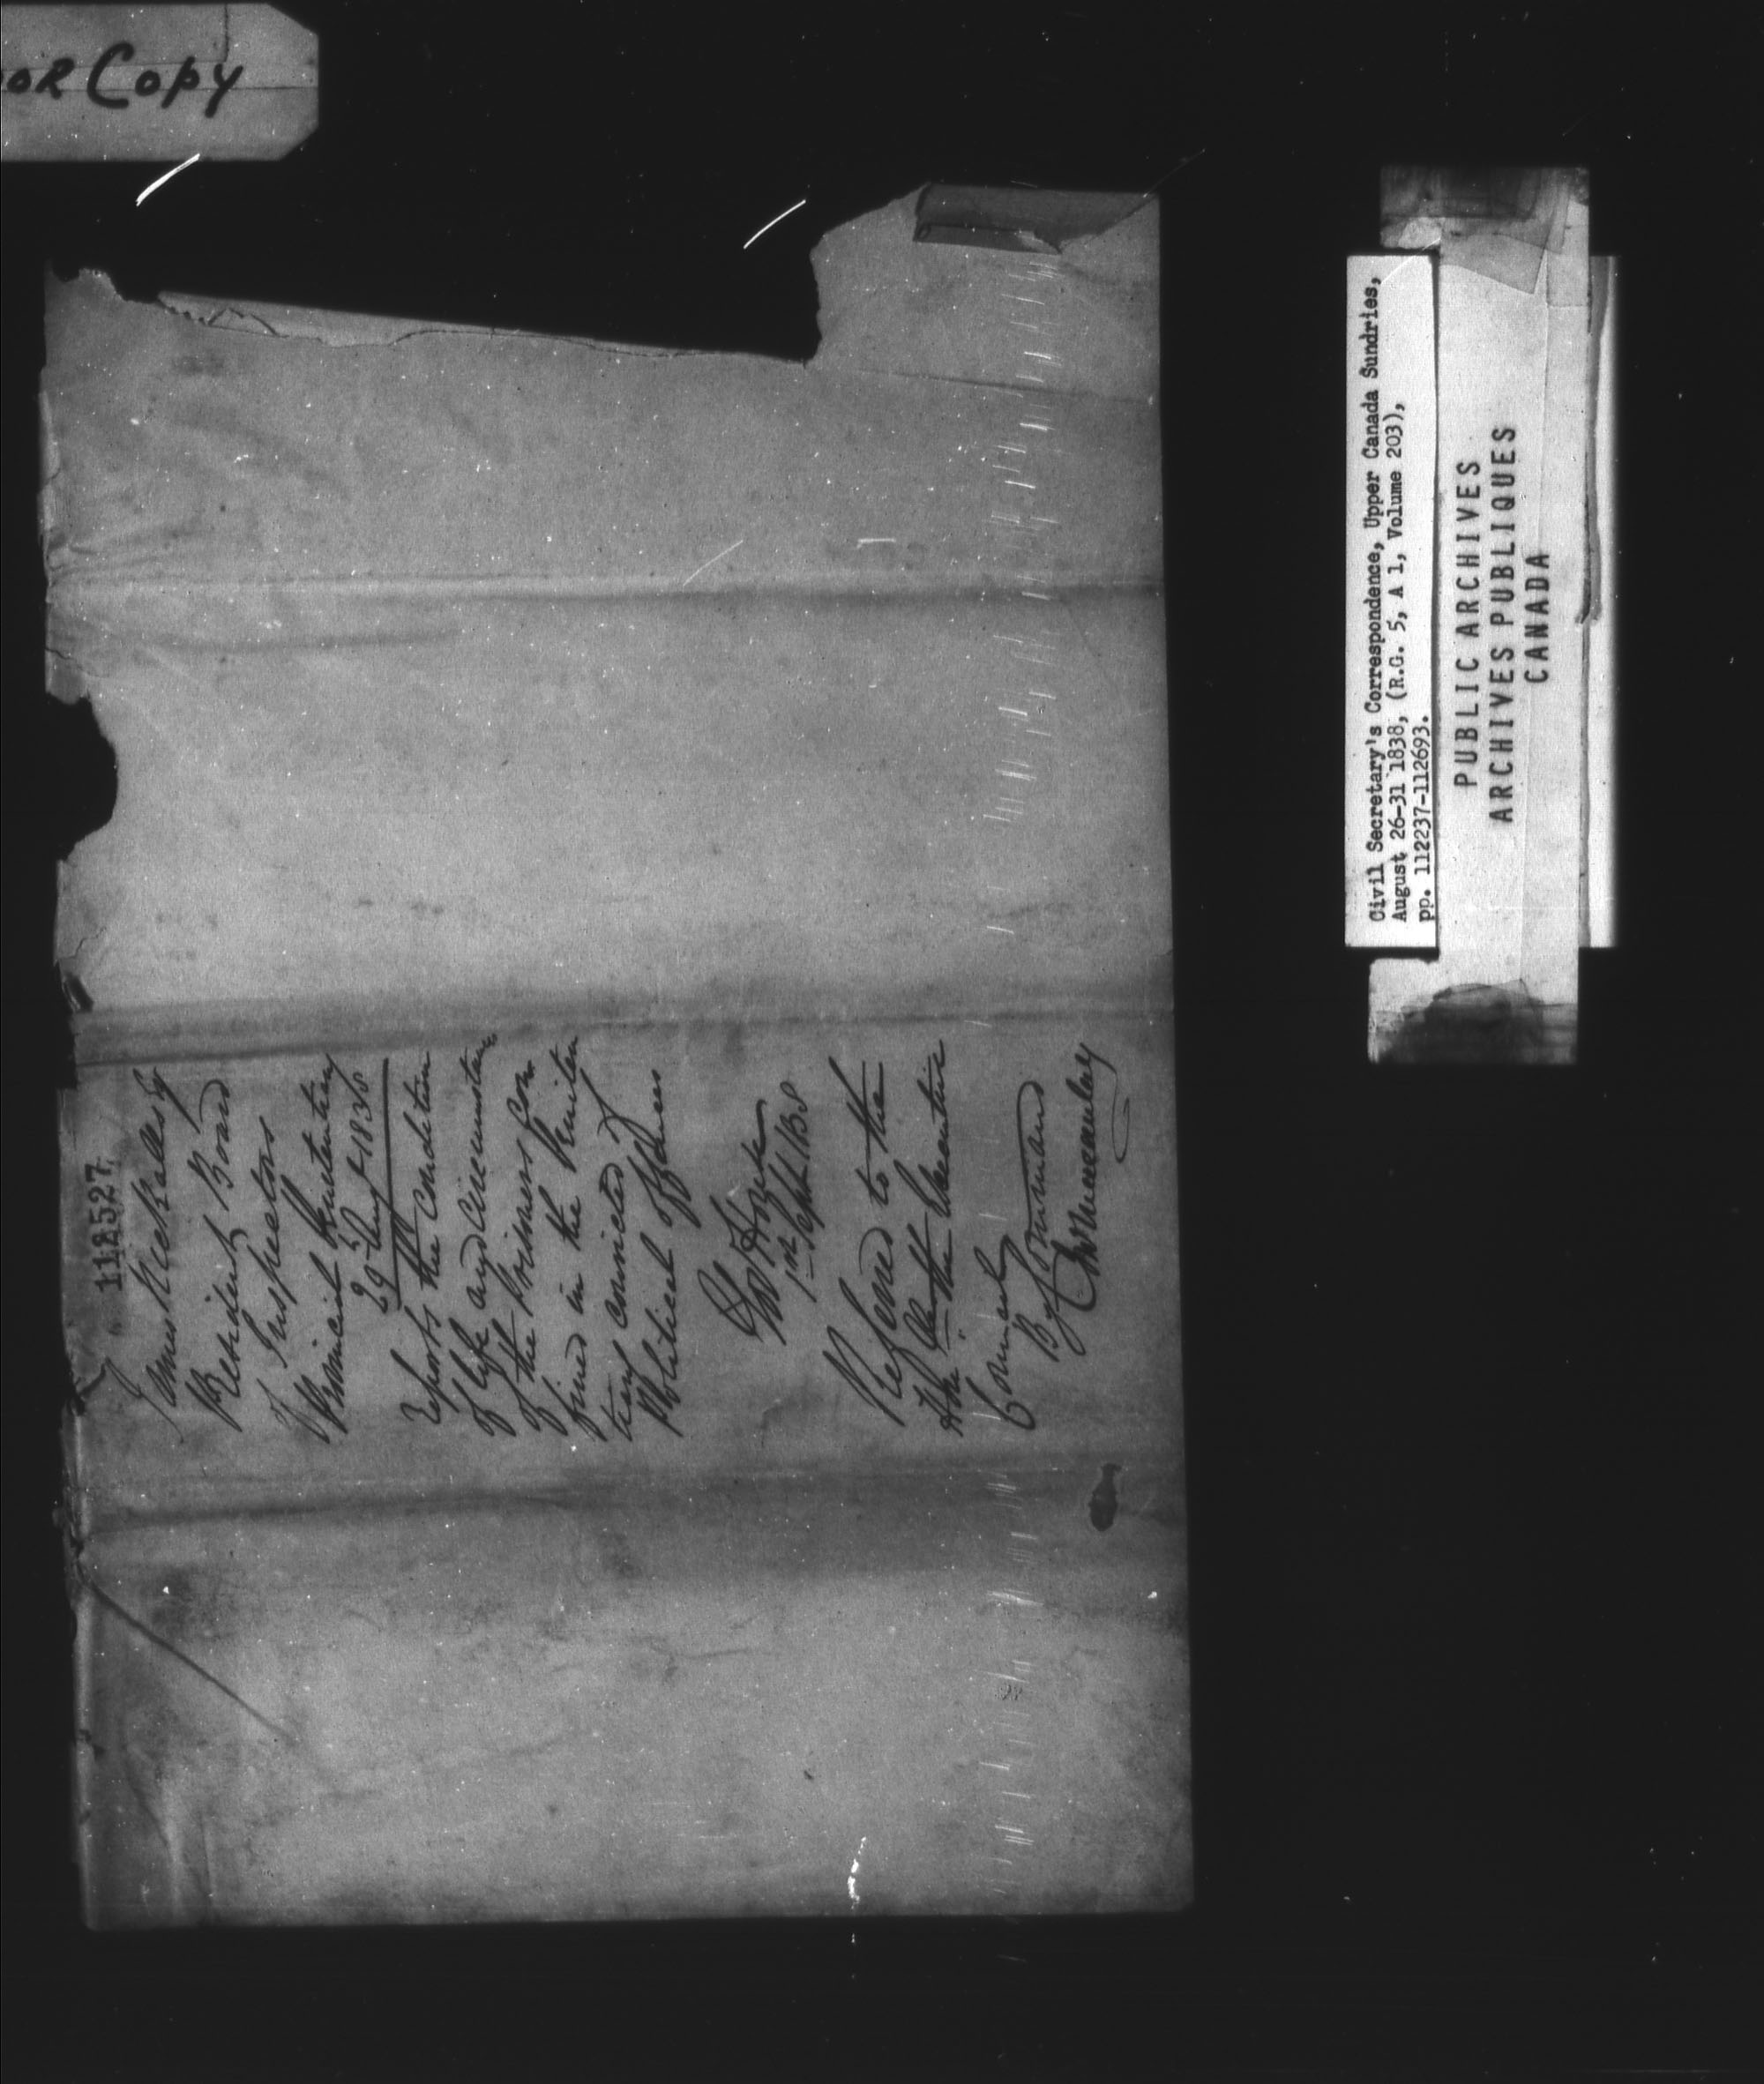 OR Copy
112527
James Nickalls Esq
President Board
of Inspectors
Provincial Penitentiary
29th Augt 1838
reports the condition
of life and circumstances
of the prisoners con
fined in the Peniten
tiary convicted of
Political offences
1st Septr 1838
Referred to the
Hon. the Executive
Council
By Command
Macaulay
Civil Secretary's Correspondence, Upper Canada Sundries,
August 26-31 1838, (R.G. 5, A 1, Volume 203),
pp. 112237-112693.
PUBLIC ARCHIVES
ARCHIVES PUBLIQUES
CANADA